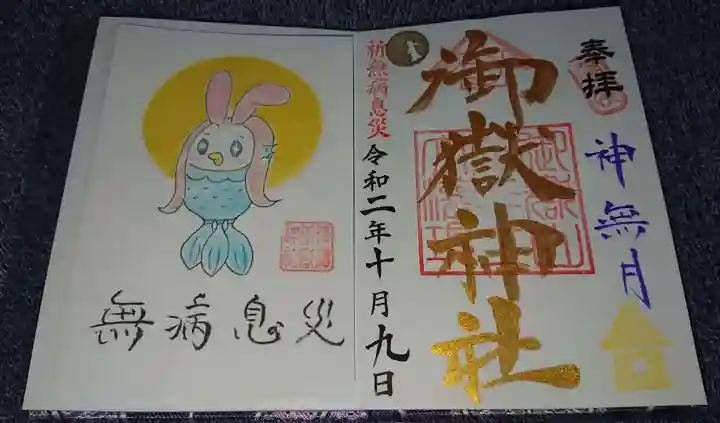 奉拝
神無月
御嶽神社
令和二年十月九日
祈無病息災
無病息災